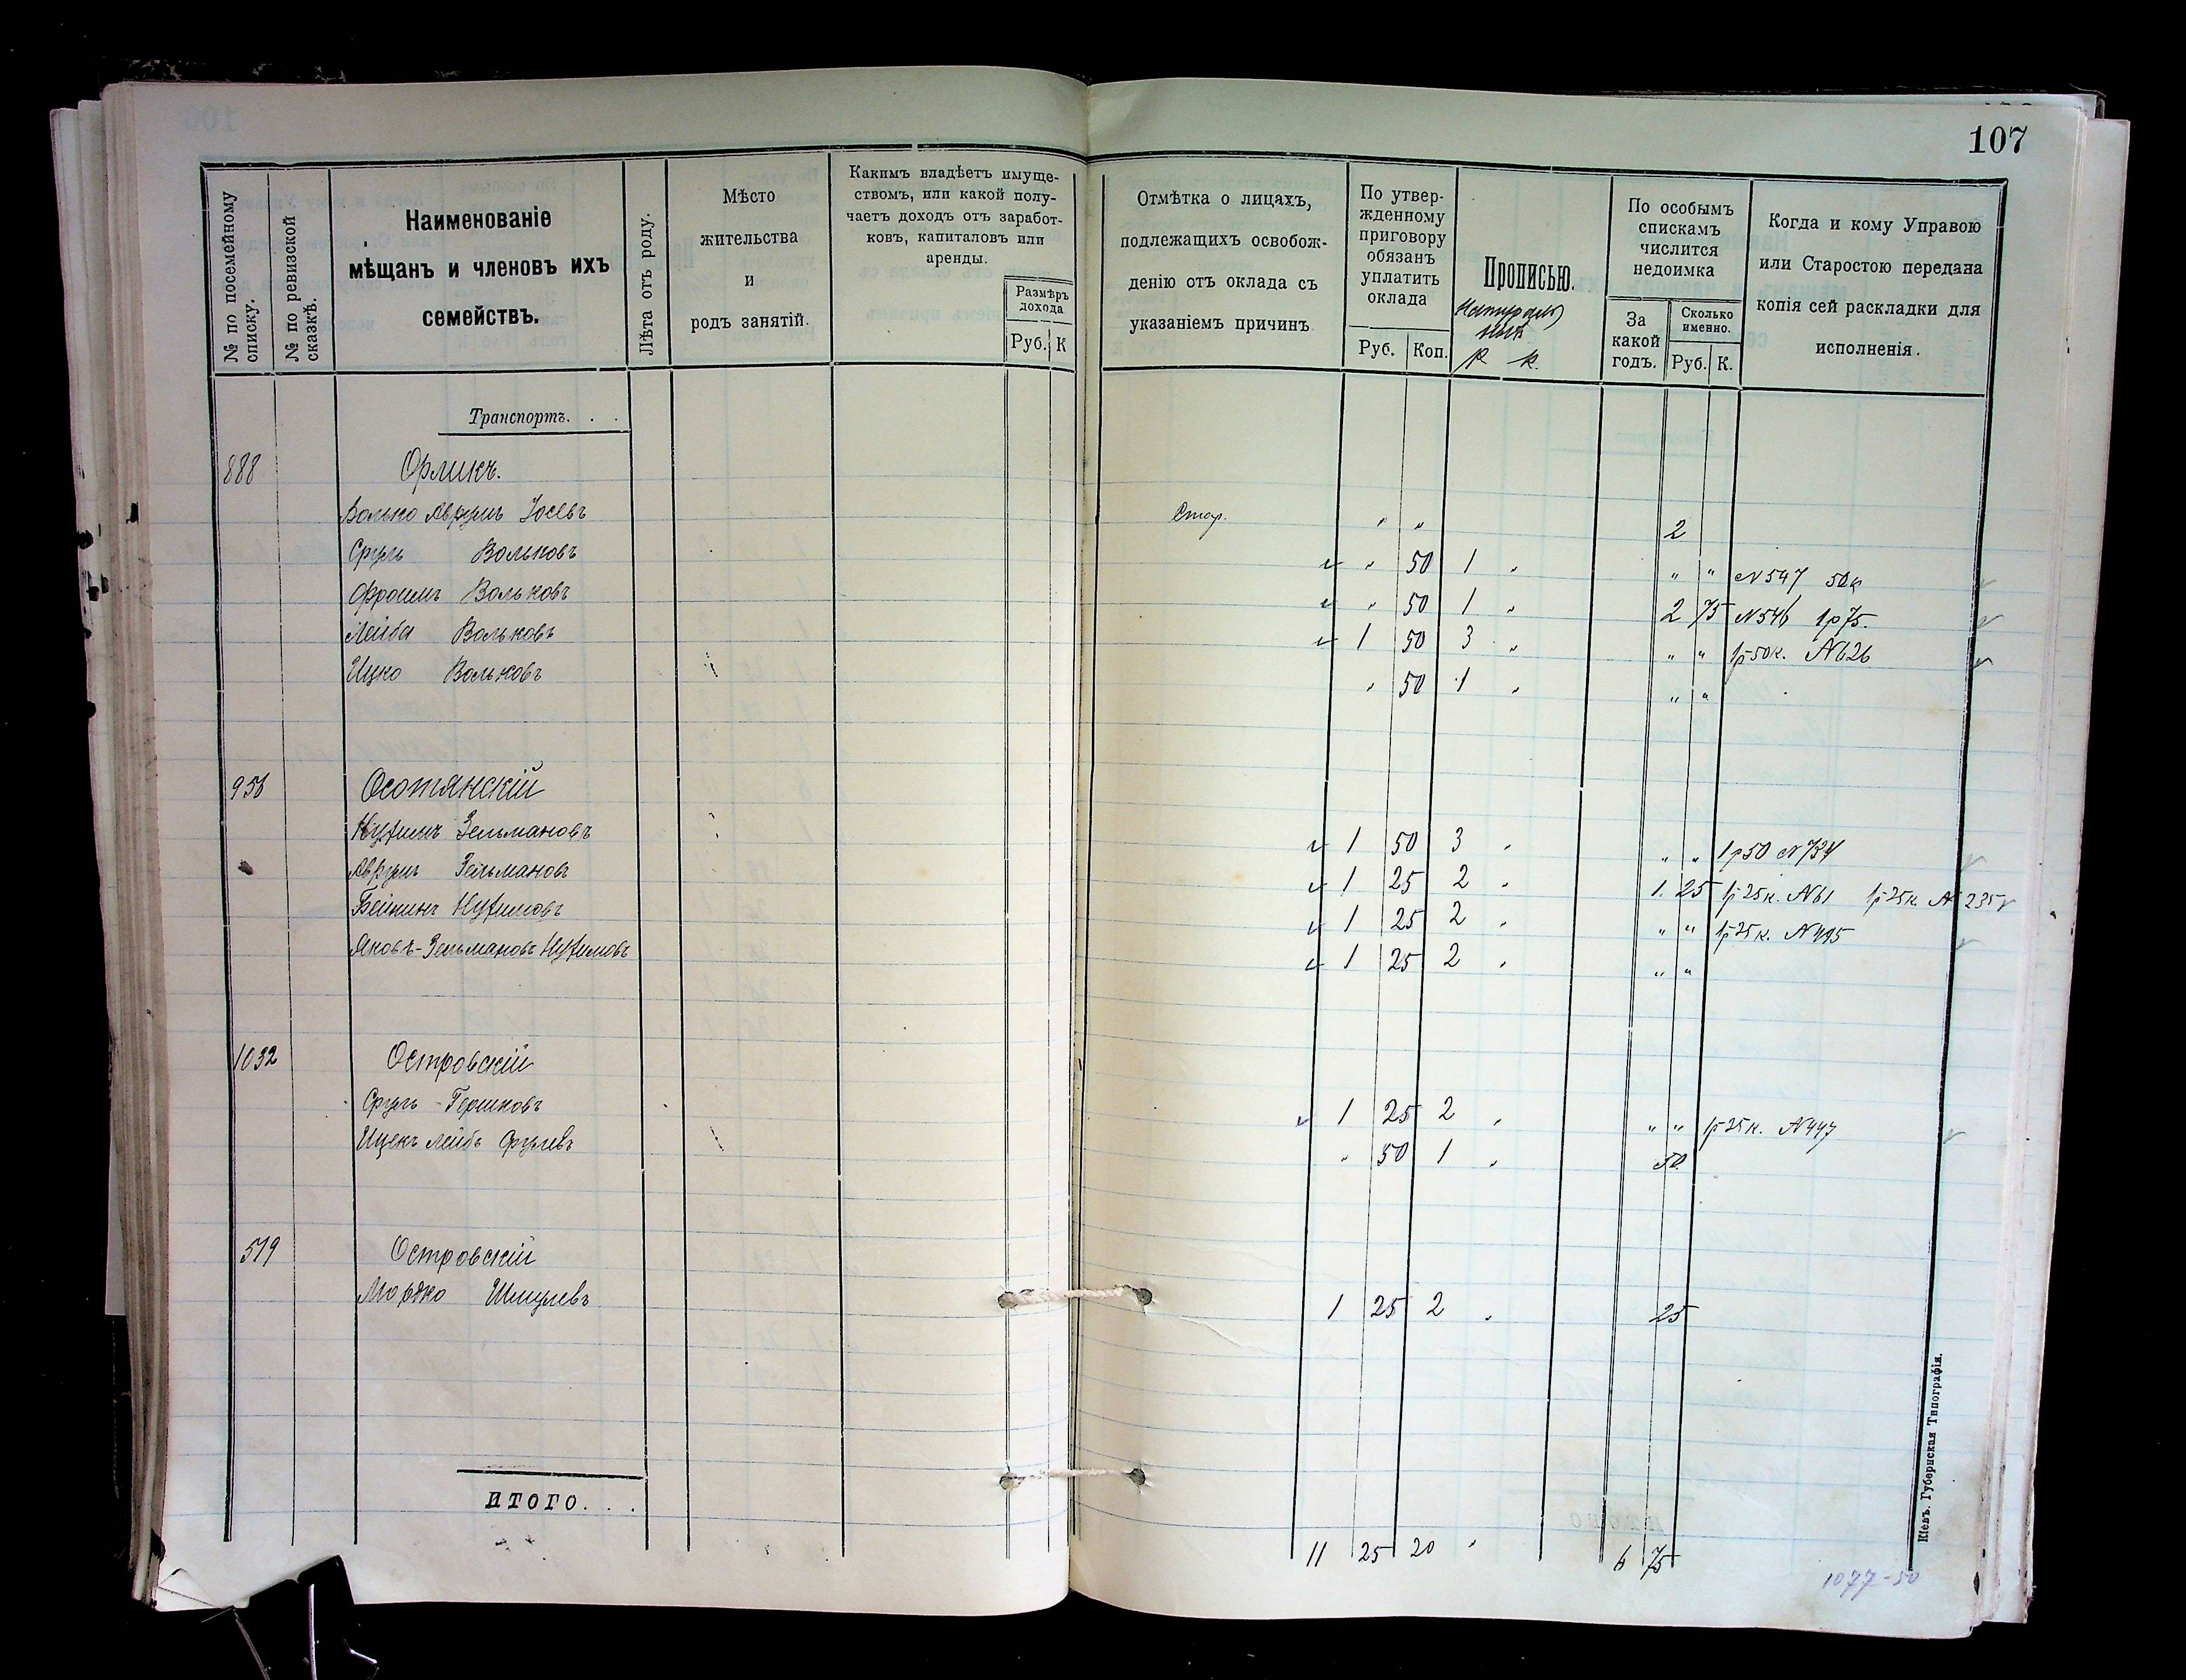 107
№ по посемейному списку.
№ по ревизской сказкѣ.
Наименованіе
мѣщанъ и членовъ ихъ
семействъ.
Лѣта отъ роду.
Мѣсто
жительства
и
родъ занятій.
Какимъ владѣетъ имуще-
ствомъ, или какой полу-
чаетъ доходъ отъ заработ-
ковъ, капиталовъ или
аренды.
Размѣръ
дохода
Руб. К
Отмѣтка о лицахъ,
подлежащихъ освобож-
денію отъ оклада съ
указаніемъ причинъ
По утвер-
жденному
приговору
обязанъ
уплатить
оклада
Руб. Коп.
Прописью.
р к.
По особымъ
спискамъ
числится
недоимка
За
какой
годъ.
Сколько
именно.
Руб. К.
Когда и кому Управою
или Старостою передана
копія сей раскладки для
исполненія.
Транспортъ. . .
888 Орликъ.
Волько Аврумъ Іосевъ Стар. " " 2
Сруль Вольковъ " 50 1 " " " N 547 50к
Фроимъ Вольковъ " 50 1 " 2 75 N 546 1р75.
Лейба Вольковъ 1 50 3 " " " 1р50к. N 626
Ицко Вольковъ " 50 1 " " "
956 Осотянскій
Нухимъ Зельмановъ 1 50 3 " " " 1р50 N 734
Аврумъ Зельмановъ 1 25 2 " 1. 25 1р25к. N 61 1р25к. N 235
Бейнишъ Нухимовъ 1 25 2 " " " 1р25к. N 495
Яковъ-Зельмановъ Нухимовъ 1 25 2 " " "
1032 Островскій
Сруль - Гершковъ 1 25 2 " " " 1р25к. N 447
Ицекъ Лейбъ Срулевъ " 50 1 " 50
519 Островскій
Мордко Шмулевъ 1 25 2 " 25
ИТОГО. . .
11 25 20 " 6 75
1077-50
Кіевъ. Губернская Типографія.